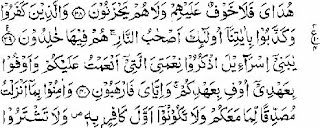 هُدَايَ فَلَا خَوْفٌ عَلَيْهِمْ وَلَا هُمْ يَحْزَنُونَ ٣٨ وَالَّذِينَ كَفَرُوا
وَكَذَّبُوا بِاٰيٰتِنَا اُولٰٓئِكَ اَصْحٰبُ النَّارِ هُمْ فِيهَا خٰلِدُونَ ٣٩
يٰبَنِيٓ اِسْرَآءِيلَ اذْكُرُوا نِعْمَتِيَ الَّتِيٓ اَنْعَمْتُ عَلَيْكُمْ وَاَوْفُوا
بِعَهْدِيٓ اُوفِ بِعَهْدِكُمْ وَاِيَّايَ فَارْهَبُونِ ٤٠ وَاٰمِنُوا بِمَآ اَنْزَلْتُ
مُصَدِّقًا لِمَا مَعَكُمْ وَلَا تَكُونُوٓا اَوَّلَ كَافِرٍ بِهٖ وَلَا تَشْتَرُوا